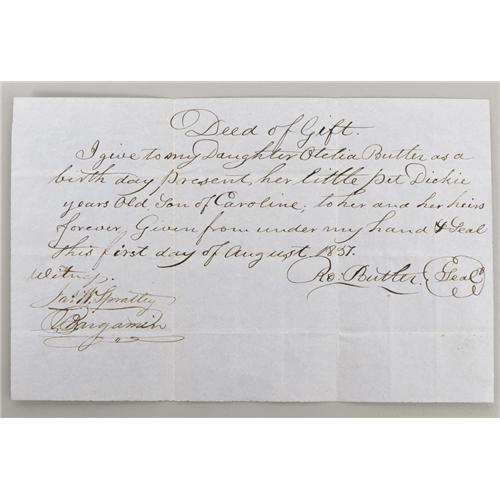 Deed of Gift.
I give to my Daughter Otelia Butler as a
birth day present, her little pet Dickie
years Old Son of Caroline; to her and her heirs
forever, Given from under my hand & Seal
this first day of August, 1857.
Witness.
Ro: Butler {Seal}
Jas. W. Spratley
Bargamin